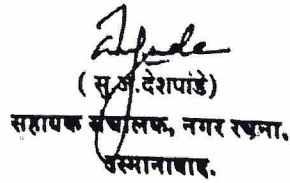 ( सु.ज.देशपांडे)
सहायक संचालक, नगर रचना.
उस्मानाबाद.